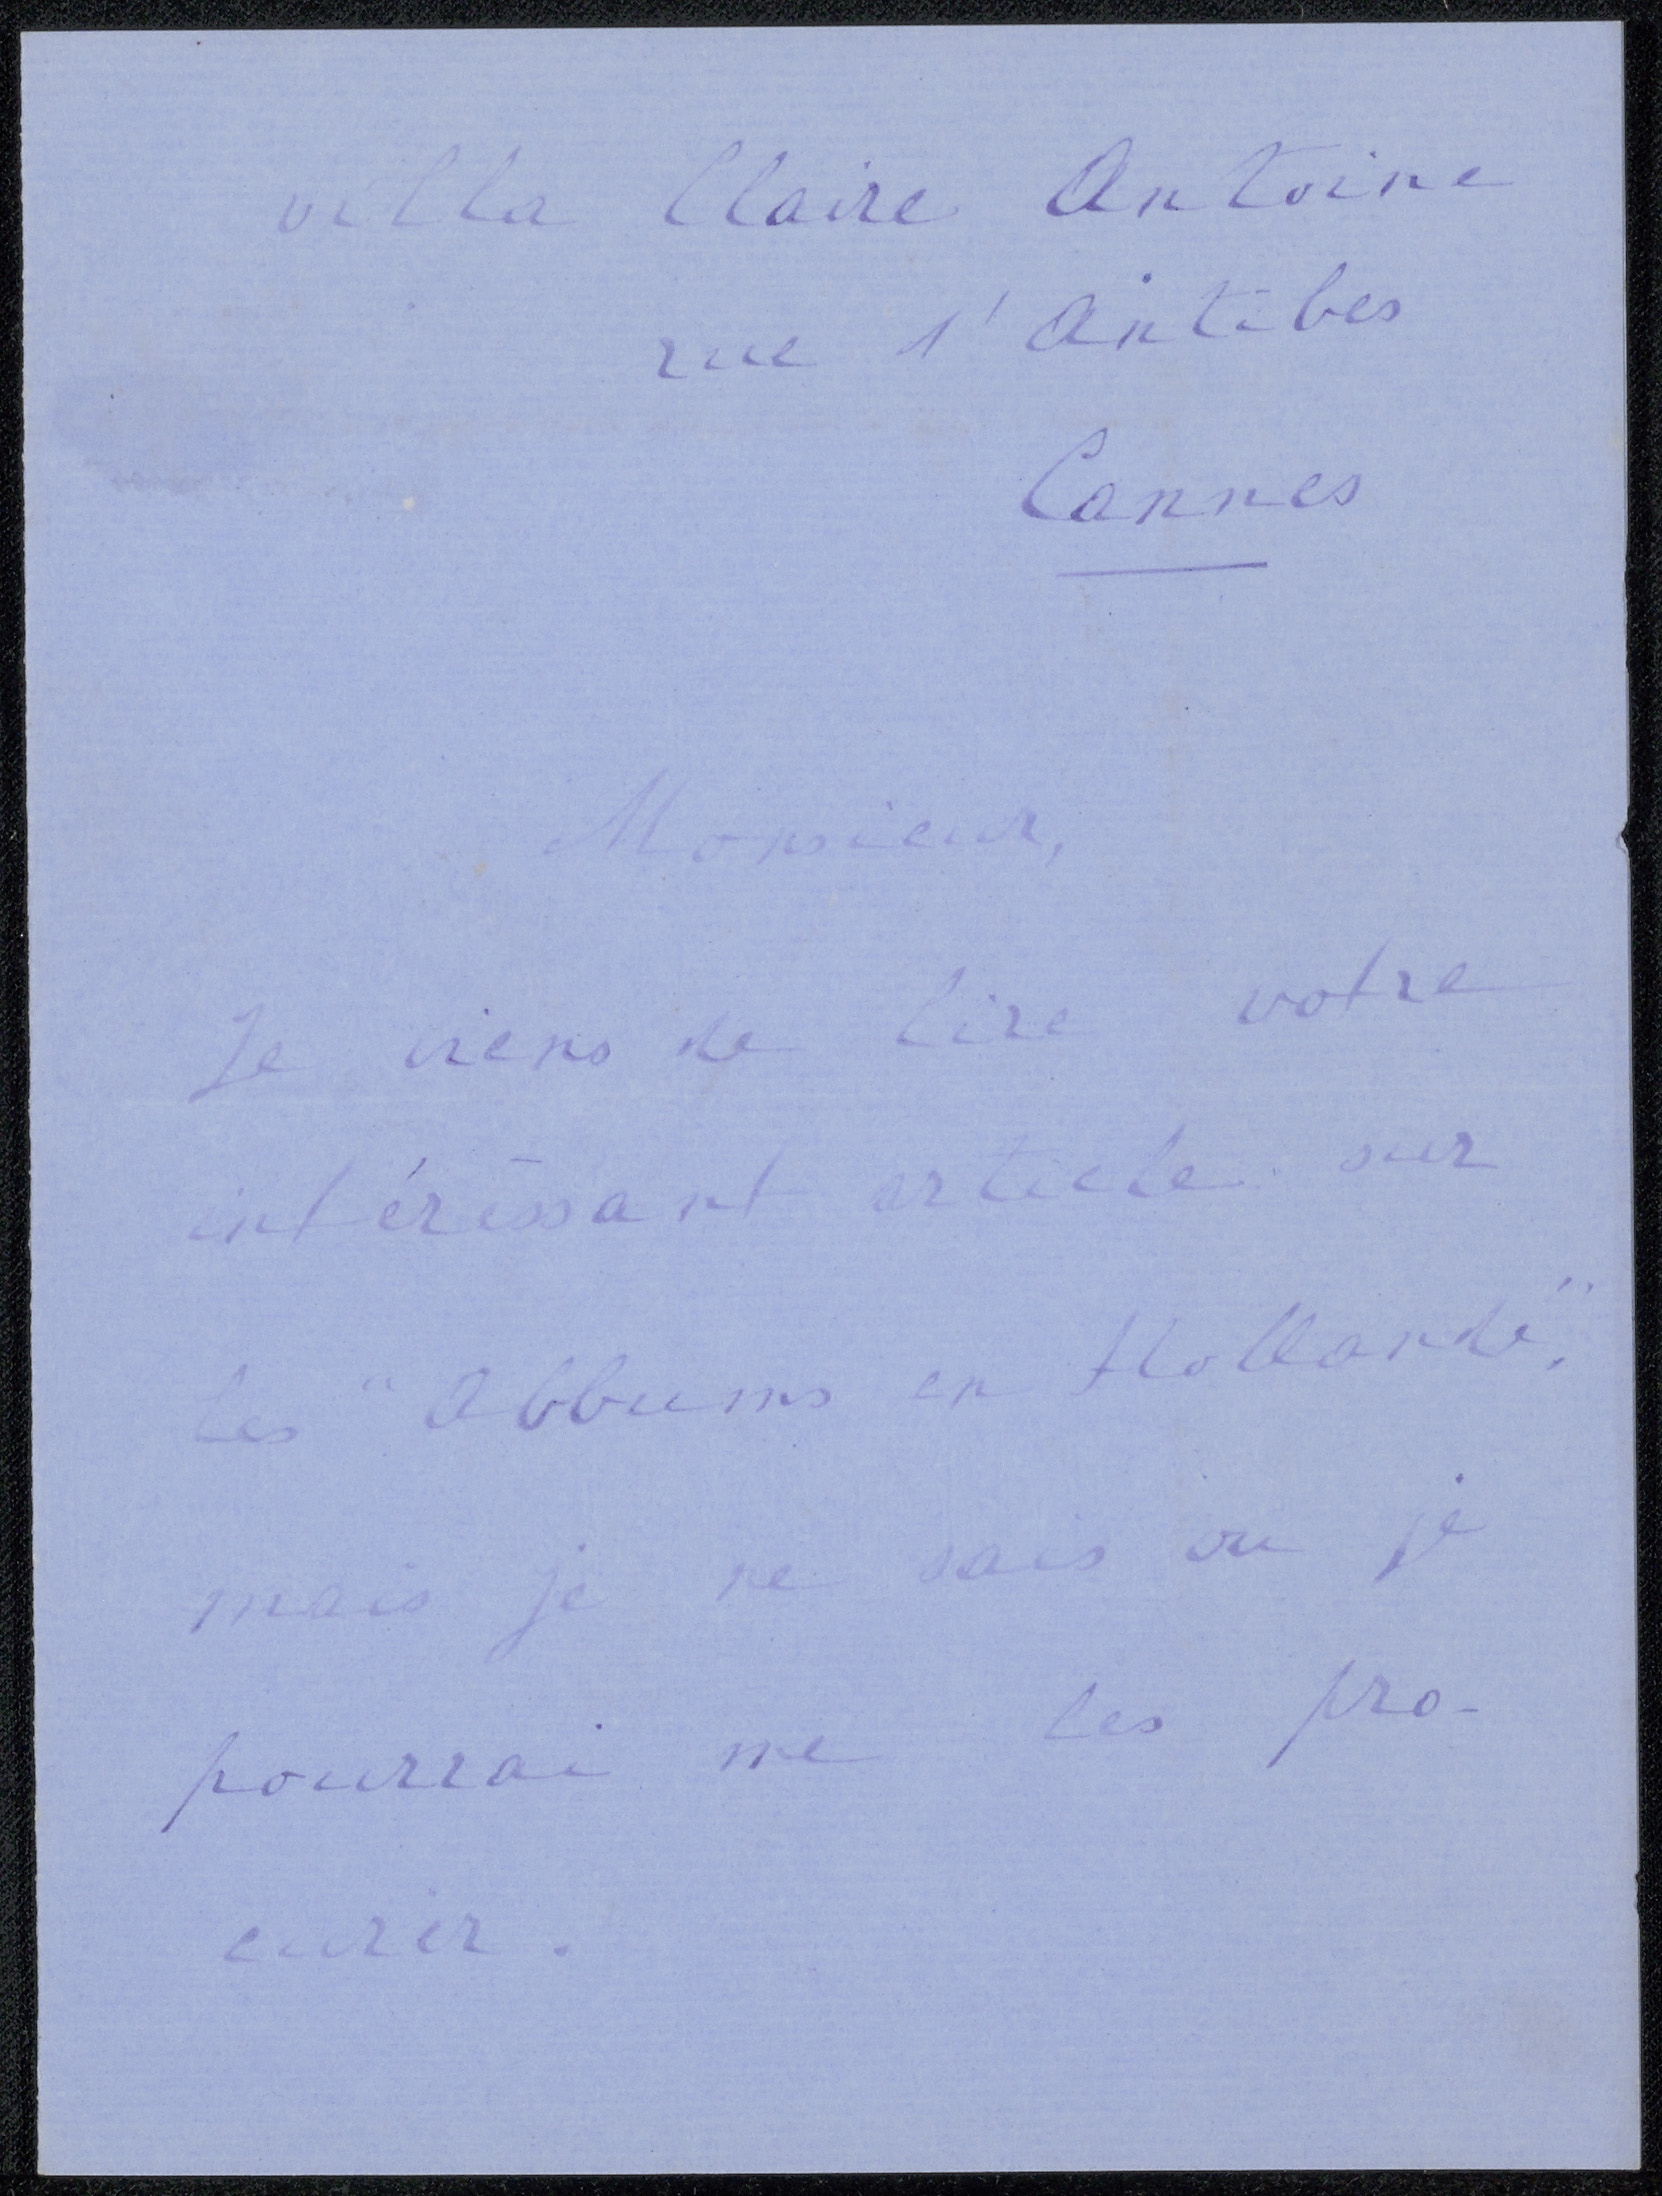 villa Claire Antoine
rue d'Antibes
Cannes
Monsieur,
Je viens de lire votre
intéressant article sur
les "Albums en Hollande",
mais je ne sais ou je
pourrai me les pro-
curer.